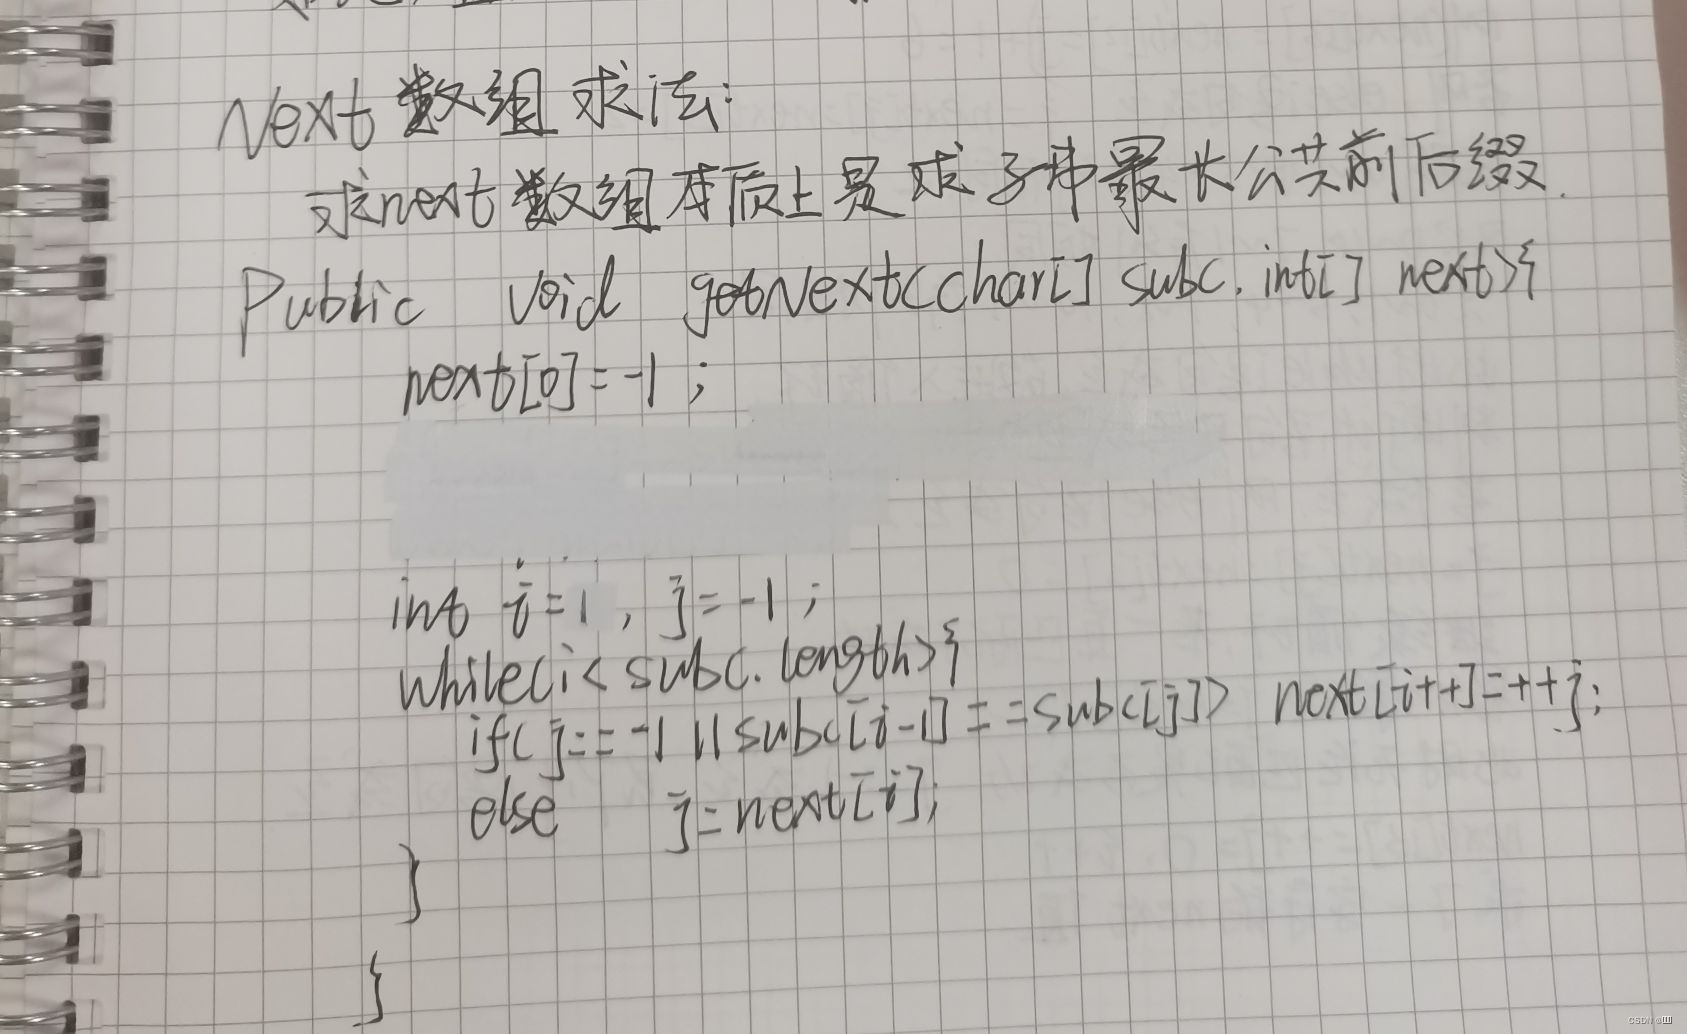 Next数组求法:
求next数组本质上是求子串最长公共前后缀.
Public void getNext(char[] subc, int[] next){
next[0]=-1;
int i=1, j=-1;
while(i<subc.length){
if(j==-1||subc[i-1]==subc[j]) next[i++]=++j;
else j=next[i];
}
}
CSDN @皿